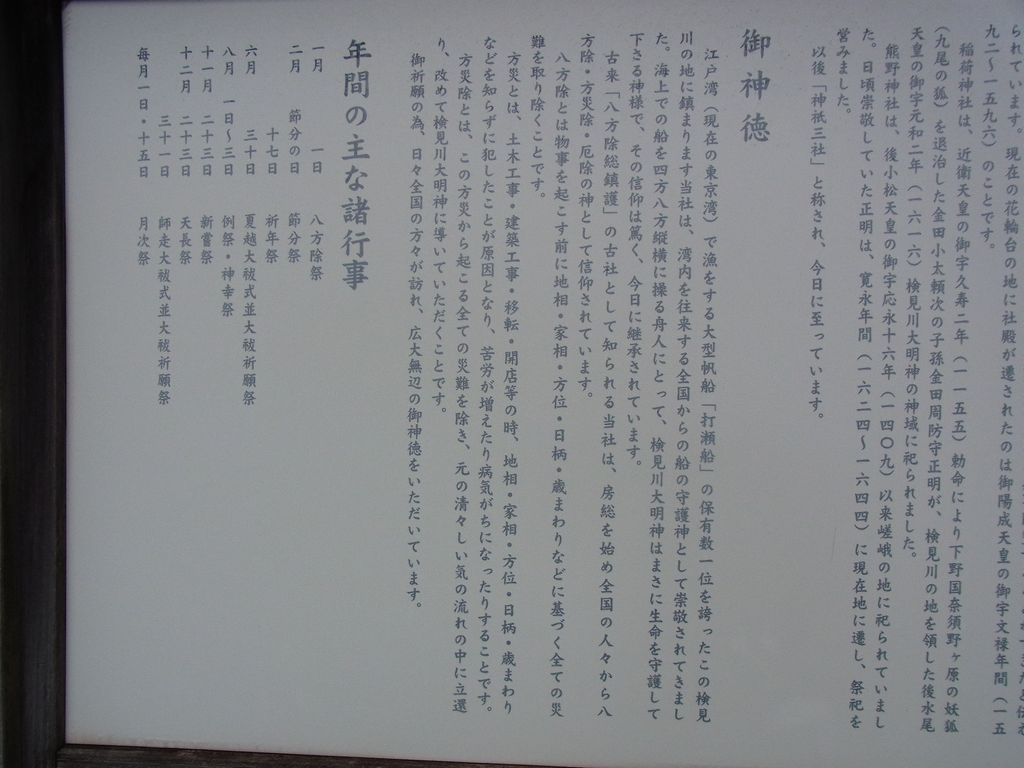 られています。現在の花輪台の地に社殿が遷されたのは御陽成天皇の御宇文禄年間（一五
九二〜一五九六）のことです。
稲荷神社は、近衛天皇の御宇久寿二年（一一五五）勅命により下野国奈須野ヶ原の妖狐
（九尾の狐）を退治した金田小太頼次の子孫金田周防守正明が、検見川の地を領した後水尾
天皇の御宇元和二年（一六一六）検見川大明神の神域に祀られました。
熊野神社は、後小松天皇の御宇応永十六年（一四〇九）以来嵯峨の地に祀られていまし
た。日頃崇敬していた正明は、寛永年間（一六二四〜一六四四）に現在地に遷し、祭祀を
営みました。
以後「神祇三社」と称され、今日に至っています。
御神徳
江戸湾（現在の東京湾）で漁をする大型帆船「打瀬船」の保有数一位を誇ったこの検見
川の地に鎮まります当社は、湾内を往来する全国からの船の守護神として崇敬されてきまし
た。海上での船を四方八方縦横に操る舟人にとって、検見川大明神はまさに生命を守護して
下さる神様で、その信仰は篤く、今日に継承されています。
古来「八方除総鎮護」の古社として知られる当社は、房総を始め全国の人々から八
方除・方災除・厄除の神として信仰されています。
八方除とは物事を起こす前に地相・家相・方位・日柄・歳まわりなどに基づく全ての災
難を取り除くことです。
方災とは、土木工事・建築工事・移転・開店等の時、地相・家相・方位・日柄・歳まわり
などを知らずに犯したことが原因となり、苦労が増えたり病気がちになったりすることです。
方災除とは、この方災から起こる全ての災難を除き、元の清々しい気の流れの中に立還
り、改めて検見川大明神に導いていただくことです。
御祈願の為、日々全国の方々が訪れ、広大無辺の御神徳をいただいています。
年間の主な諸行事
一月 一日 八方除祭
二月 節分の日 節分祭
十七日 祈年祭
六月 三十日 夏越大祓式並大祓祈願祭
八月 一日〜三日 例祭・神幸祭
十一月 二十三日 新嘗祭
十二月 二十三日 天長祭
三十一日 師走大祓式並大祓祈願祭
毎月一日・十五日 月次祭